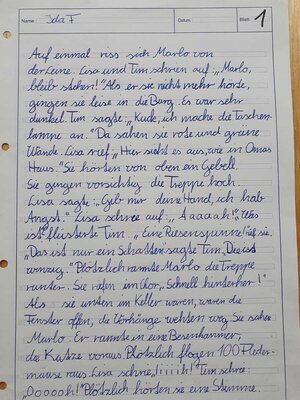 Name Ida F
Datum
Blatt 1
Auf einmal riss sich Marlo von
der Leine. Lisa und Tim schrien auf: „Marlo,
bleib stehen!" Als er sie nicht mehr hörte,
gingen sie leise in die Burg. Es war sehr
dunkel. Tim sagte: „Kucke, ich mache die Taschen-
lampe an." Da sahen sie rote und graue
Wände. Lisa rief: „Hier sieht es aus, wie in Omas
Haus." Sie hörten von oben ein Gebell
Sie gingen vorsichtig die Treppe hoch.
Lisa sagte: „Gib mir deine Hand, ich hab
Angst." Lisa schrie auf „Aaaaah!" „Was
ist?" flüsterte Tim. „Eine Riesenspinne!" rief sie.
„Das ist nur ein Schatten" sagte Tim „Die ist
winzig." Plötzlich rannte Marlo die Treppe
runter. Sie rufen im Chor „Schnell hinterher!"
Als sie unten im Keller waren, waren die
Fenster offen, die Vorhänge wehten weg. Sie sahen
Marlo. Er rannte in eine Besenkammer,
die Katze voraus. Plötzlich flogen 100 Fleder-
mäuse raus. Lisa schrie „Iiiiih!" Tim schrie:
„Ooooooh!" Plötzlich hörten sie eine Stimme.